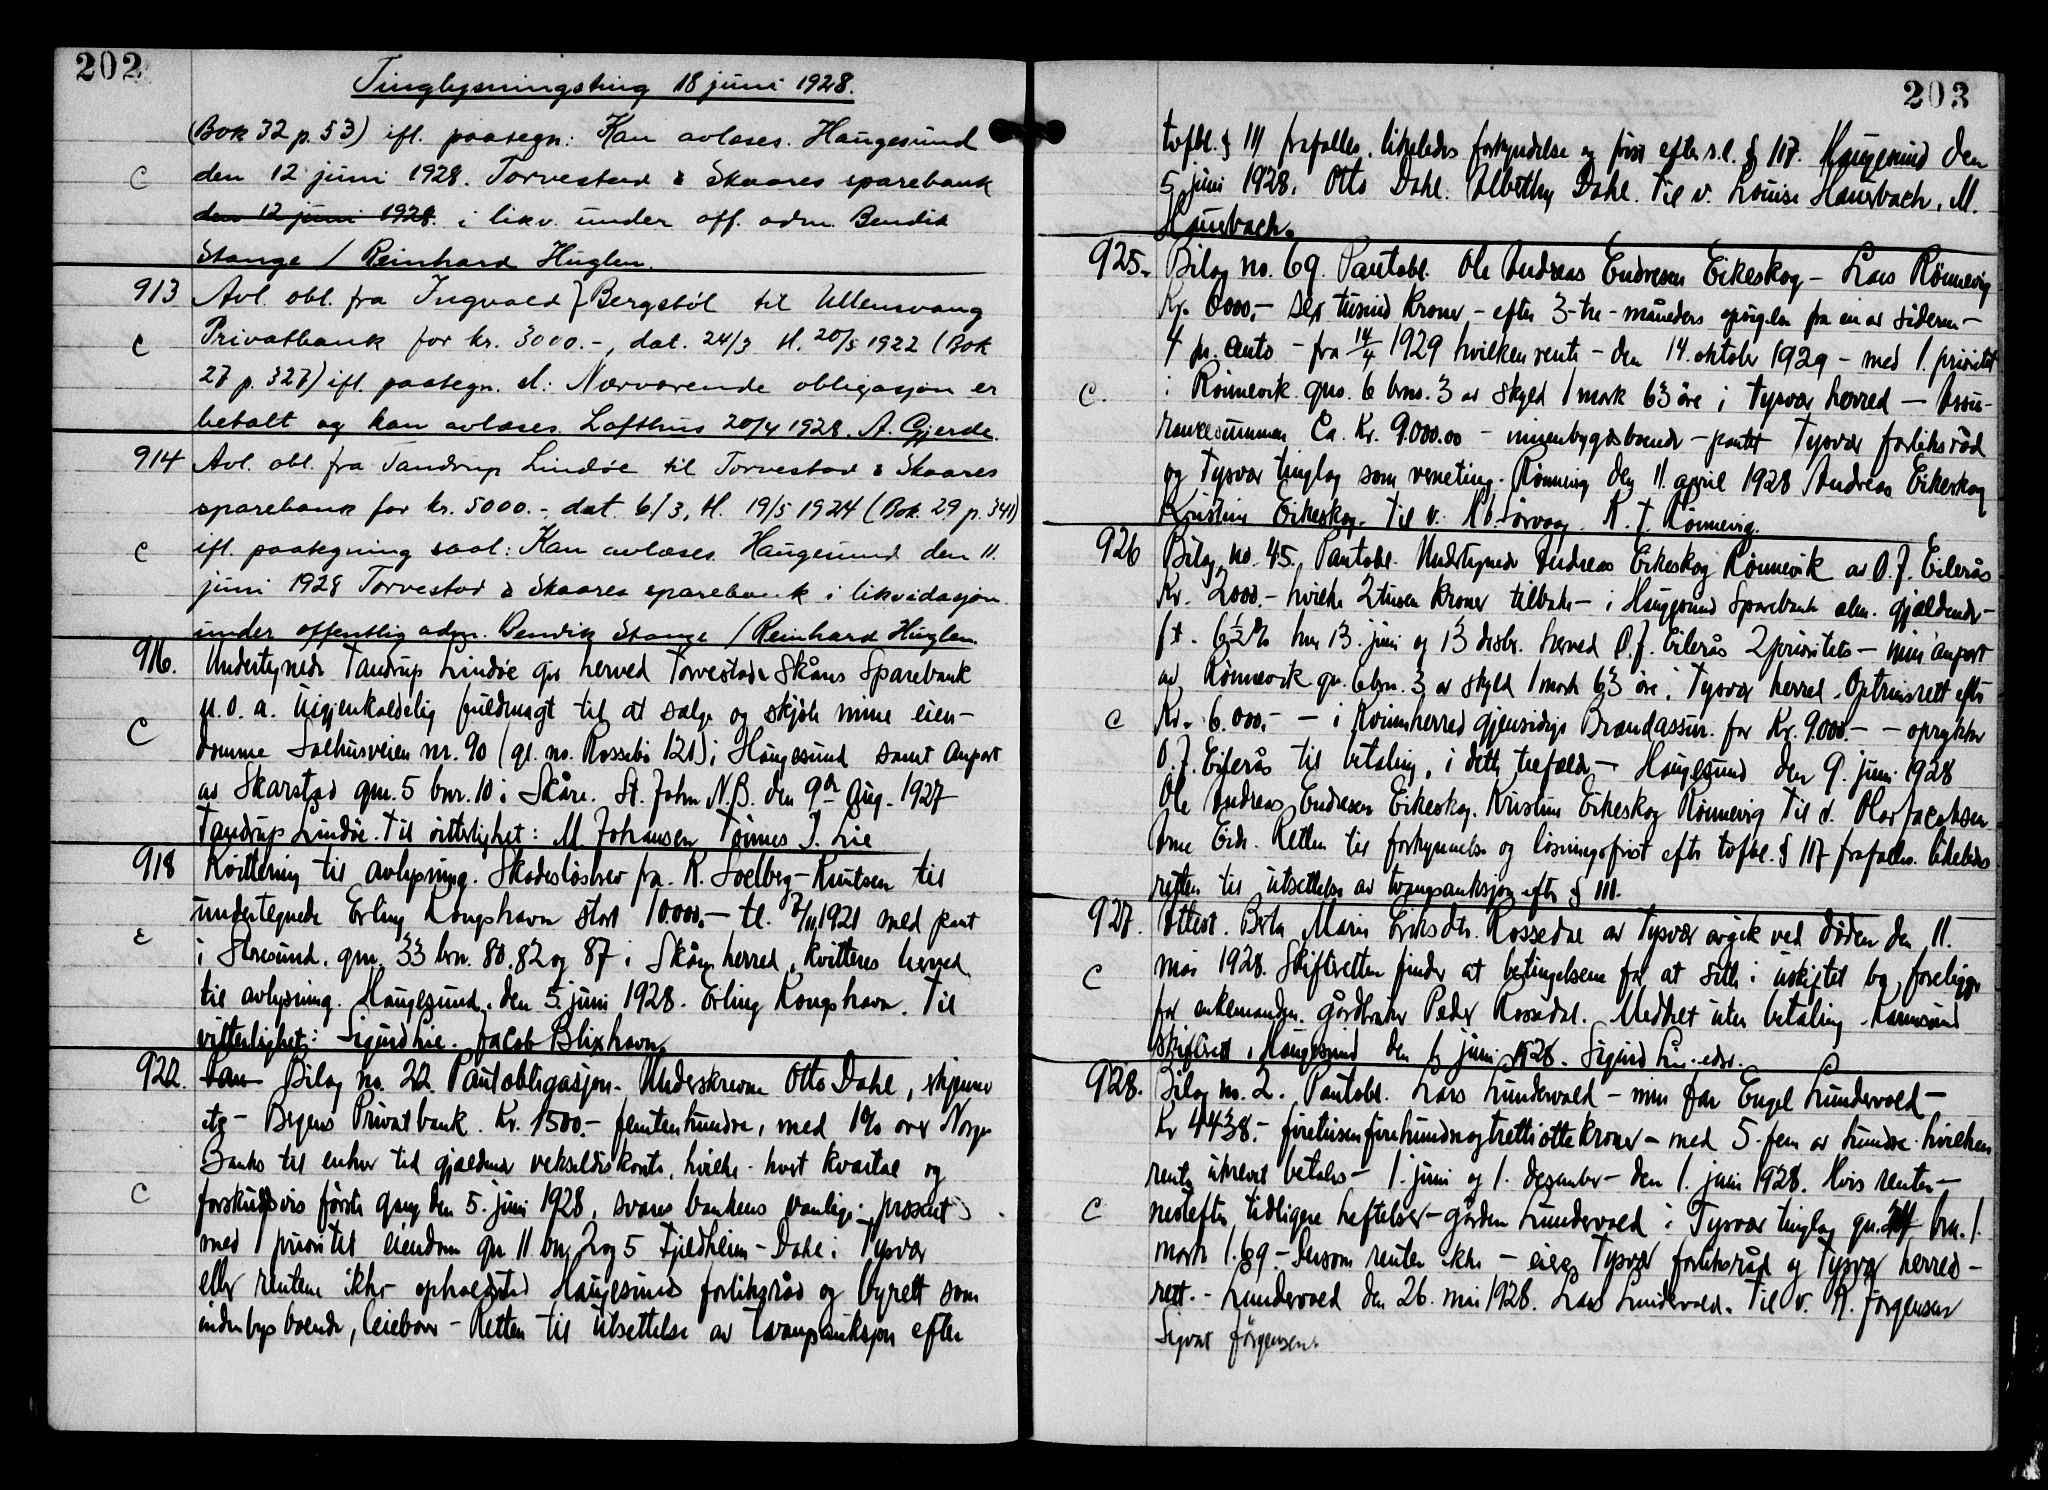 202
Tinglysningsting 18 juni 1928.
(Bok 32 p. 53) ifl. paategn: Kan avlæses. Haugesund
C den 12 juni 1928. Torvestad & Skaares sparebank
den 12 juni 1928. i likv. under off. adm. Bendik
Stange / Reinhard Huglen.
913 Avl. obl. fra Ingvald Bergstöl til Ullensvang
C Privatbank for kr. 3000.-, dat. 24/3 tl. 20/5 1922 (Bok
27 p. 327) ifl. paategn. sl.: Nærværende obligasjon er
betalt og kan avlæses. Lofthus 20/4 1928. A. Gjerde.
914 Avl. obl. fra Tandrup Lindöe til Torvestad & Skaares
sparebank for kr. 5000.-, dat 6/3, tl. 19/5 1924 (Bok 29 p. 341)
C ifl. paategning saal: Kan avlæses. Haugesund den 11.
juni 1928 Torvestad & Skaares sparebank i likvidasjon
under offentlig adm. Bendik Stange / Reinhard Huglen.
916. Undertegnede Tandrup Lindöe gir herved Torvestad & Skåres Sparebank
C u. o. a. uigjenkaldelig fuldmagt til at sælge og skjöte mine eien-
domme Salhusveien nr. 90 (gl. no. Rossebö 121) i Haugesund samt anpart
av Skarstad gnr. 5 bnr. 10 i Skåre. St. John N.B. den 9de Aug. 1927
Tandrup Lindöe. Til vitterlighet: M. Johansen Tönnes J. Lie
918 Kvittering til avlysning. Skadeslösbrev fra K. Soelberg-Knutsen til
undertegnede Erling Kongshavn stort 10.000.- tl. /11 1921 med pant
C i gnr. 33 brn. 80, 82 og 87 i Skåre herred, kvitteres herved
til avlysning. Haugesund, den 5. juni 1928. Erling Kongshavn. Til
vitterlighet: Sigurd Lie. Jacob Blixhavn
922. Pan Bilag no. 22. Pantobligasjon. Underskrevne Otto Dahl, skjenner
etc - Bergens Privatbank. Kr. 1500.- femtenhundre, med 1% over Norges
Banks til enhver tid gjældende vekseldiskonto, hvilke - hvert kvartal og
C forskudsvis förste gang den 5. juni 1928, svares bankens vanlige prosent
med 1 prioritet eiendom gnr 11 bnr 2 og 5 Fjeldheim - Dahl i Tysvær
eller rentene ikke - opholdssted Haugesunds forliksråd og byrett som
indenbys boende, leieboer - Retten til utsettelse av tvangsauksjon efter
203
tvfbl. § 111 frafalles, likeledes forkyndelse og frist efter s.l. § 117. Haugesund den
5 juni 1928. Otto Dahl. Dahl. Til v. Louise Hausbach. M.
Hausbach.
925. Bilag no. 69. Pantobl. Ole Andreas Endresen Eikeskog - Lars Rönnevig
Kr. 6000,- seks tusind kroner - efter 3-tre-måneders opsigelse fra en av sidene -
4 pr. cento - fra 14/4 1929 hvilken rente - den 14. oktober 1929 - med 1. prioritet
C. i Rönnevik gnr. 6 brnr. 3 av skyld 1 mark 63 öre i Tysvær herred - Assu-
rancesummen Ca. Kr. 9.000.00 - innenbygdsboende - pantet Tysvær forliksråd
og Tysvær tinglag som verneting. Rönnevig den 11. april 1928 Andreas Eikeskog
Kristine Eikeskog. Til v. Sörvaag. K. T. Rönnevig.
926 Bilag no. 45. Pantobl. Undertegnede Andreas Eikeskog Rönnevik av O. J. Eilerås
Kr. 2000.- hvilke 2 tusen kroner tilbake - i Haugesund Sparebank alm. gjældende -
f. t. 6½% hver 13. juni og 13 desbr. herved O. J. Eilerås 2 prioritets - min anpart
av Rönnevik gnr. 6 brn. 3 av skyld 1 mark 63 öre i Tysvær herred. Optrinsrett efter
C Kr. 6.000.- - i Kvinnherred gjensidige Brandassur. for Kr. 9.000.- - oprykker
O. J. Eilerås til betaling, i dette tilfælde - Haugesund den 9. juni 1928
Ole Andreas Endresen Eikeskog. Kristine Eikeskog Rönnevig Til v. Olav Jacobsen
Arne Eide. Retten til forkynnelse og lösningsfrist efter tvfbl. § 117 frafalles. Likeledes
retten til utsettelse av tvangsauksjon efter § 111.
927. Attest. Berta Marie Eriksdtr. Rossedal av Tysvær avgik ved döden den 11.
C mai 1928. Skifteretten finder at betingelsene for at sitte i uskiftet bo foreligger
for enkemanden gårdbruker Peder Rossedal. Meddelt uten betaling. Karmsund
skifterett, Haugesund den 6 juni 1928. Sigurd Lie. edsv.
928. Bilag no. 2. Pantobl. Lars Lundervold - min far Engel Lundervold -
Kr 4438.- firetusenfirehundreogtrettiotte kroner - med 5-fem av hundre hvilken
rente ukrevet betales - 1. juni og 1. desember - den 1. juni 1928. Hvis renter -
C nestefter tidligere heftelser - gården Lundervold i Tysvær tinglag gnr. bnr. 1.
mark 1.69 - dersom renten ikke - eiers Tysvær forliksråd og Tysvær herreds-
rett. - Lundervold den 26. mai 1928. Lars Lundervold. Til v. K. Jörgensen
Sigvat Jörgensen.